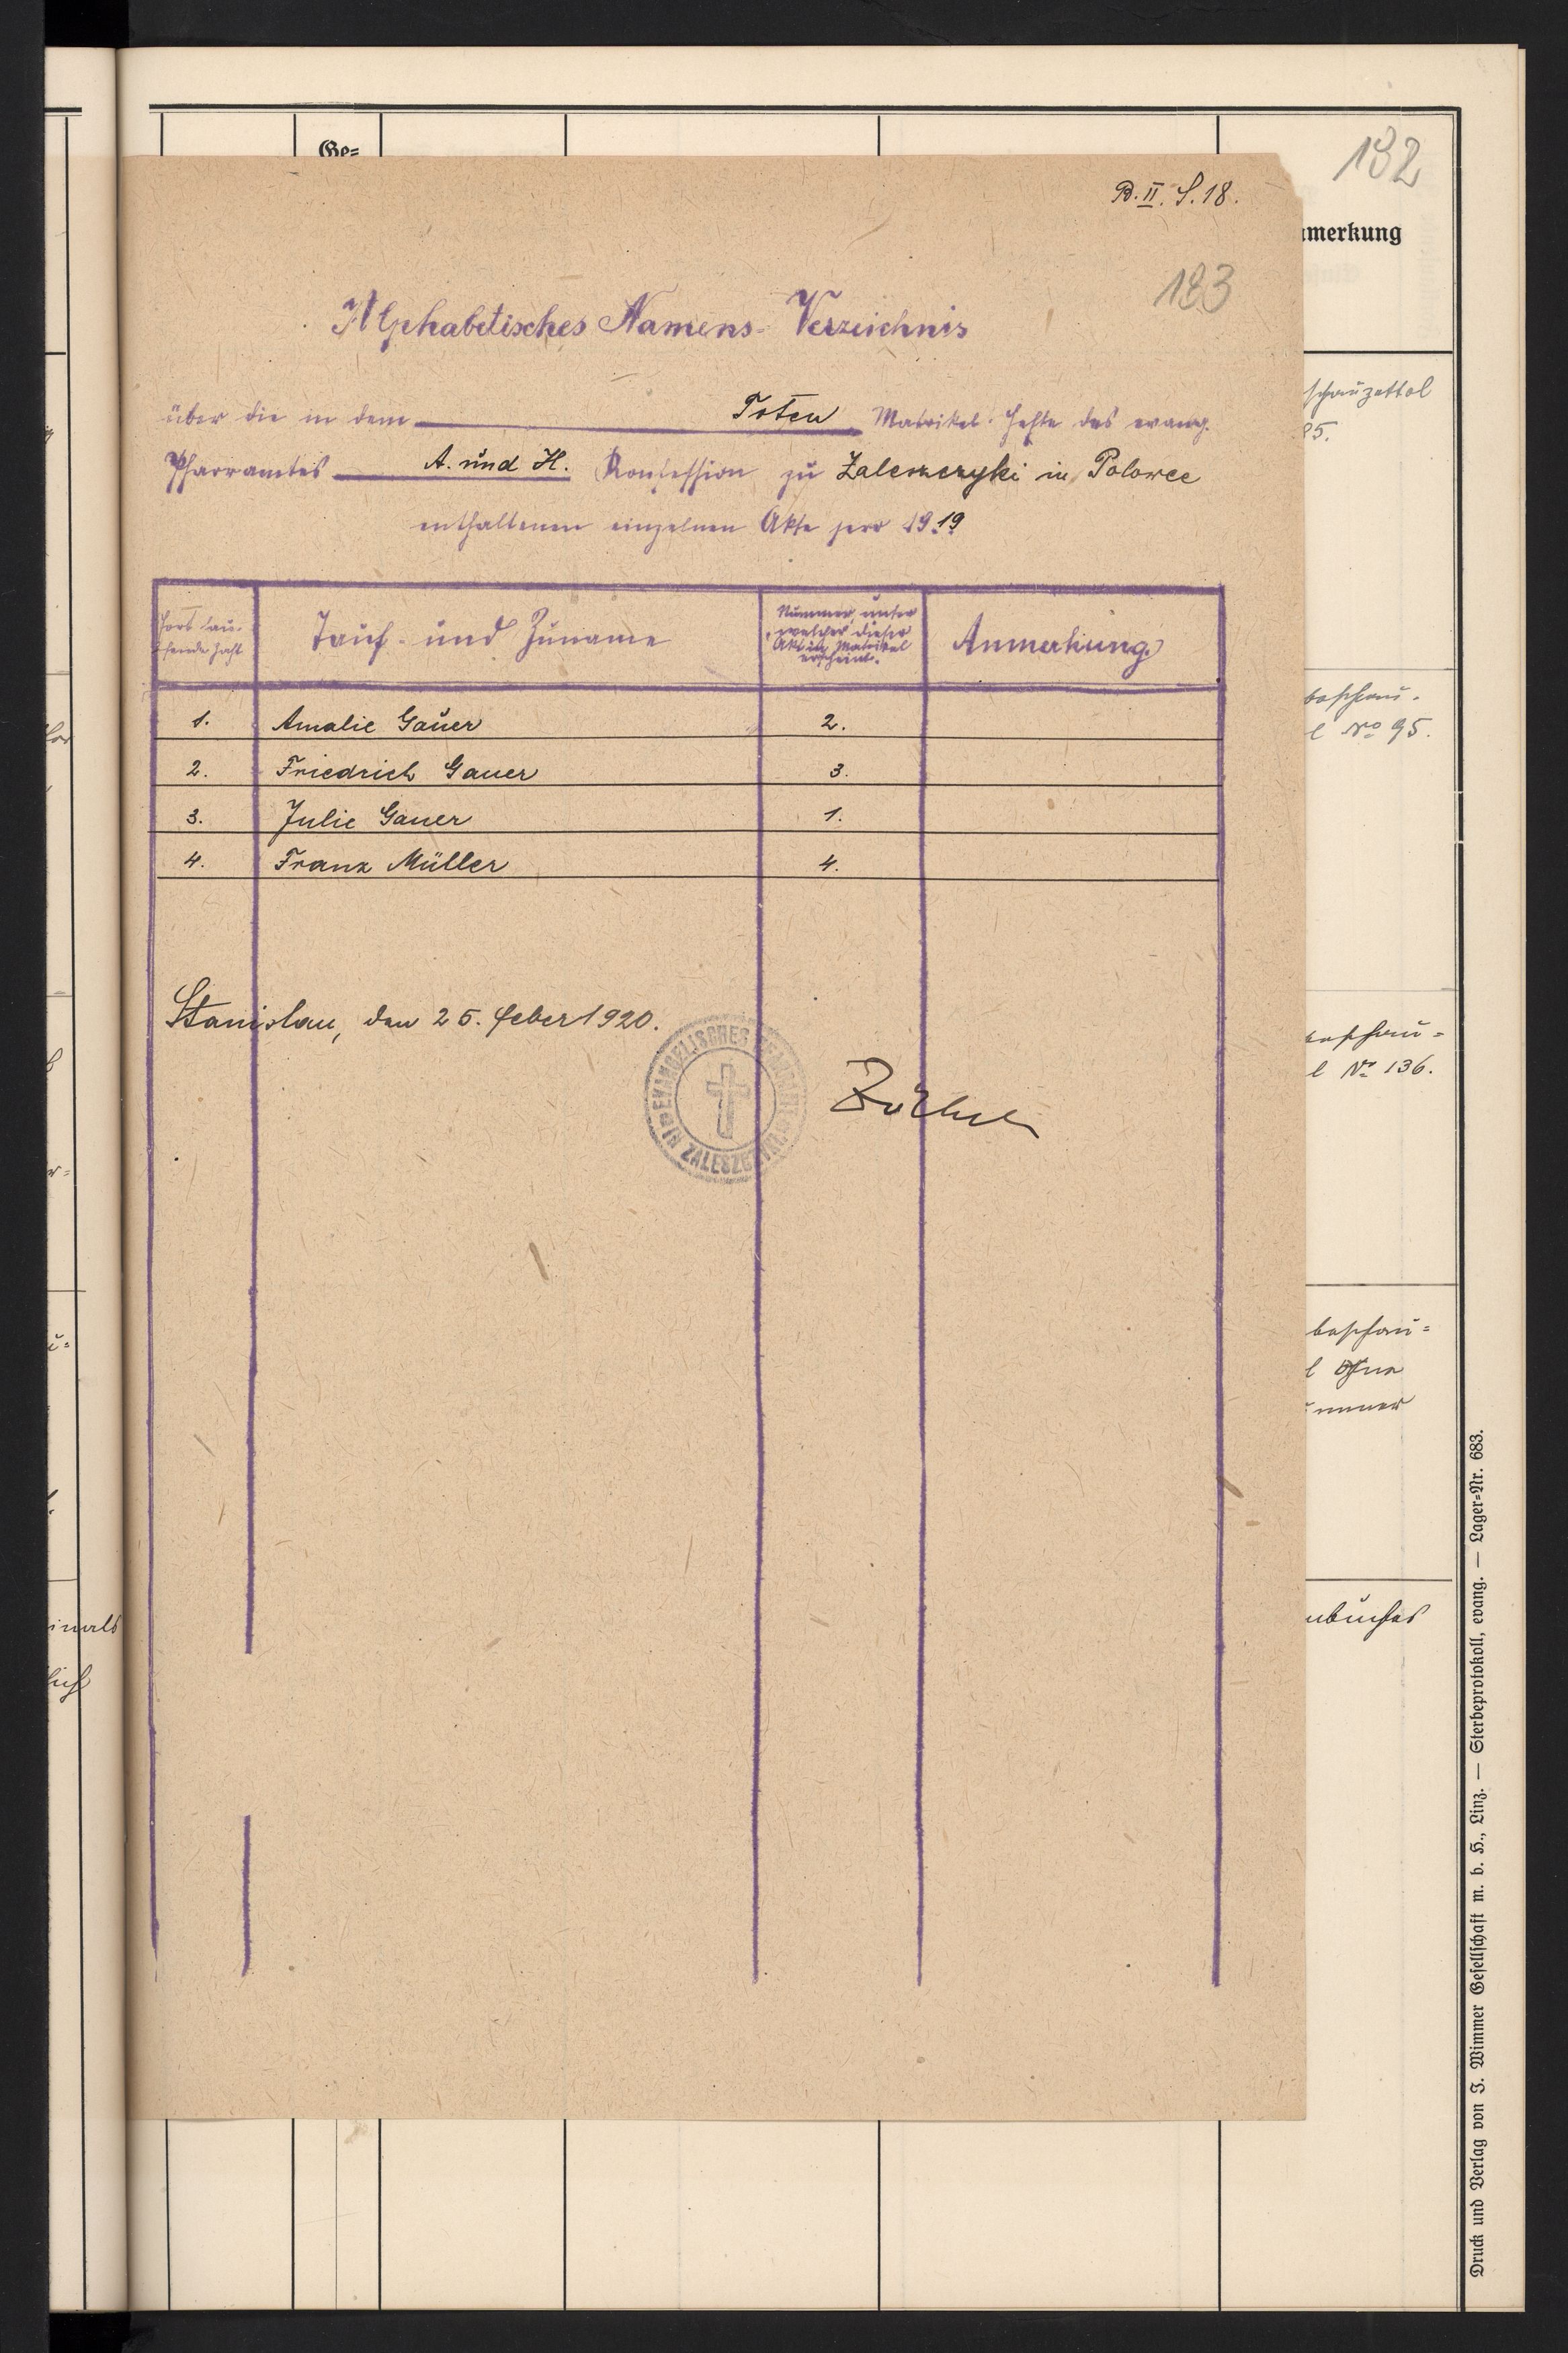 Ge=
132
B. II. S. 18.
Anmerkung
183
Alphabetisches Namens- Verzeichnis
über die in dem Toten Matrikel-Hefte des evang.
Pfarramtes A. und H. Konfession zu Zaleszczyki in Polowce
enthaltenen einzelnen Akte pro 1919
Fort lau-
fende Zahl
Tauf- und Zuname
Nummer, unter
welcher dieser
Akt in Matrikel
erscheint.
Anmerkung
1. Amalie Gauer 2.
2. Friedrich Gauer 3.
3. Julie Gauer 1.
4. Franz Müller 4.
Stanislau, den 25. Feber 1920.
EVANGELISCHES PFARRAMT
ZALESZCZYKI
schauzettel
85.
beschau-
l No 95.
beschau=
l No 136.
beschau=
l Ohne
ummer
nbuches
Druck und Verlag von J. Wimmer Gesellschaft m. b. H., Linz. — Sterbeprotokoll, evang. — Lager=Nr. 683.